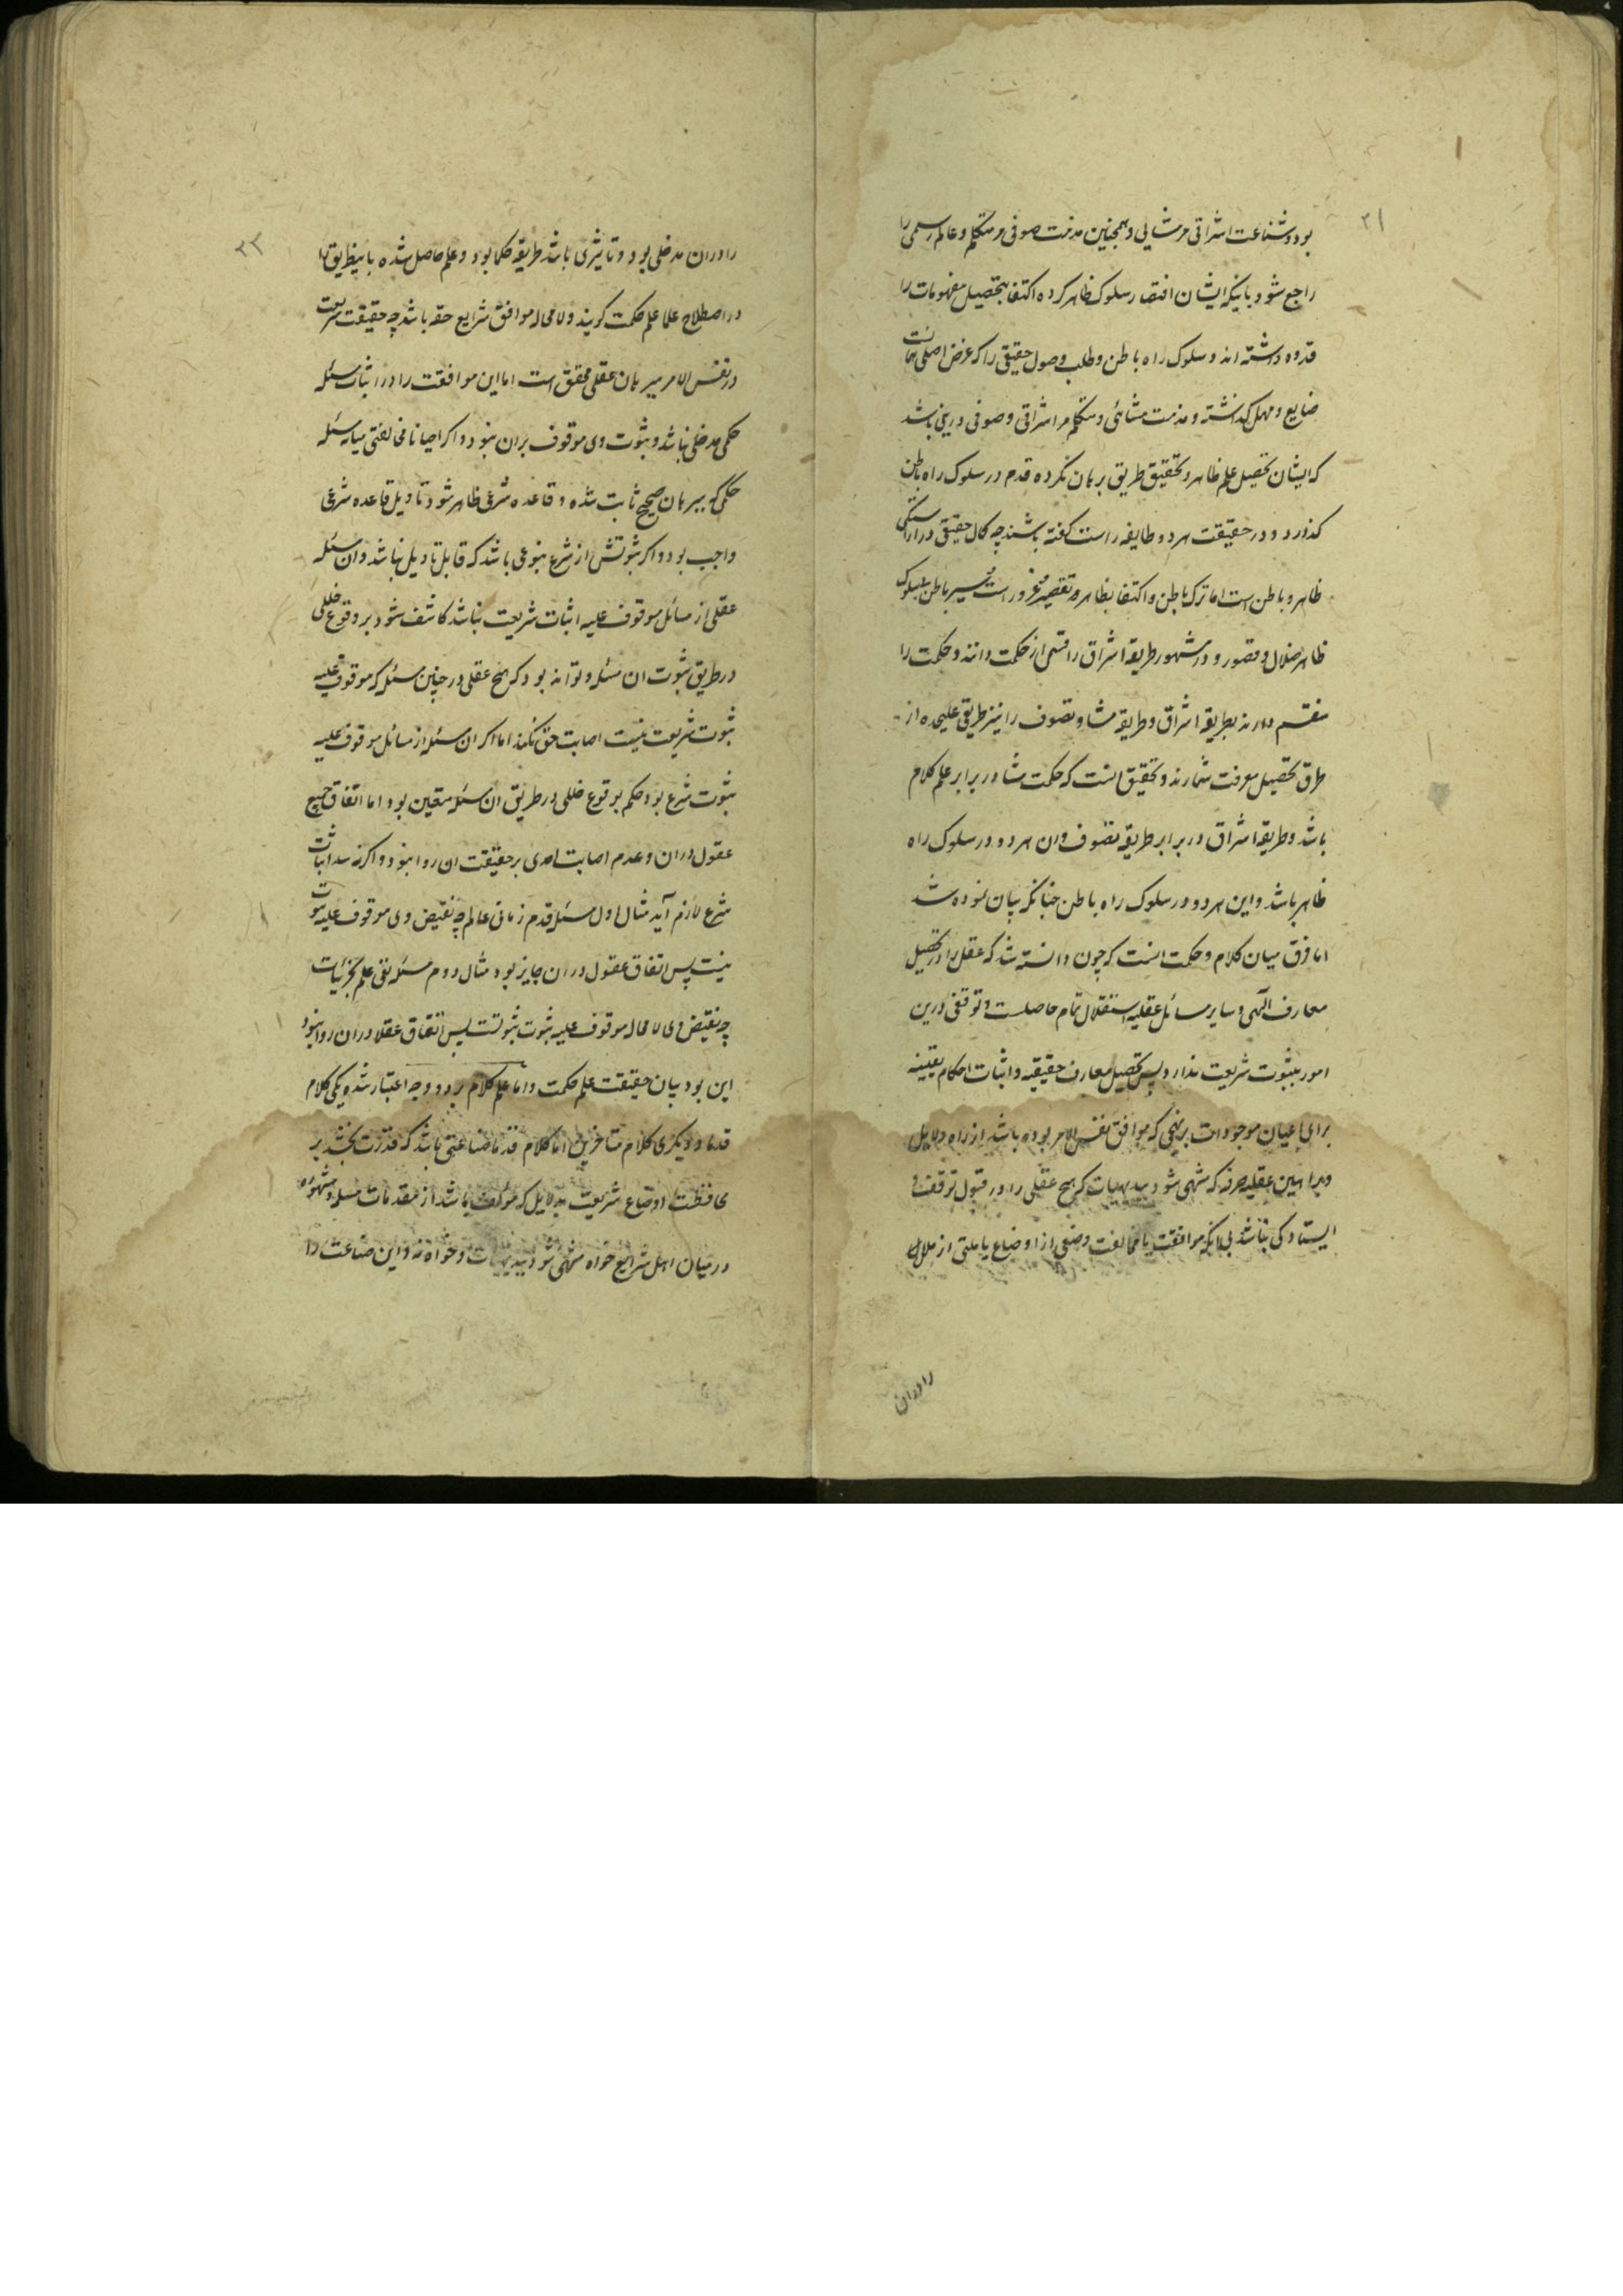 ۲۱
بود و شناعت اشراقی مر مشایی و همچنین مذمت صوفی مر متکلم و عالم رسمی را
راجع شود باینکه ایشان اقتصار سلوک ظاهر کرده اکتفا بتحصیل مفهومات را
قدوه داشته اند و سلوک راه باطن و طلب وصول حقیقی را که غرض اصلی همانست
ضایع و مهمل گذاشته و مذمت مشائی و متکلم مر اشراقی و صوفی در این باشد
که ایشان تحصیل علم ظاهر و تحقیق طریق برهان نکرده قدم در سلوک راه باطن
گذارد و در حقیقت هر دو طایفه راست گفته باشند چه کمال حقیقی در آراستگی
ظاهر و باطن است اما ترک باطن و اکتفا بظاهر تقصیر و غرور است و سیر باطن بی سلوک
ظاهر ضلال و قصور و در مشهور طریقه اشراق را قسمی از حکمت دانند و حکمت را
منقسم دارند بطریقه اشراق و طریقه مشا و تصوف را نیز طریقی علیحده از
طرق تحصیل معرفت شمارند و تحقیق انست که حکمت مشا در برابر علم کلام
باشد و طریقه اشراق در برابر طریقه تصوف و ان هر دو در سلوک راه
ظاهر باشد و این هر دو در سلوک راه باطن چنانکه بیان نموده شد
اما فرق میان کلام و حکمت انست که چون دانسته شد که عقل را در تحصیل
معارف الهی و سایر مسائل عقلیه استقلال تمام حاصلست و توقفی درین
امور بثبوت شریعت ندارد پس تحصیل معارف حقیقیه و اثبات احکام یقینیه
برای اعیان موجودات بر نهجی که موافق نفس الامر بوده باشد از راه دلایل
و براهین عقلیه صرفه که منتهی شود ببدیهیات که هیچ عقلی را در قبول توقف و
ایستادگی نباشد بی انکه موافقت یا مخالفت وضعی از اوضاع یا ملتی از ملل
را دران
۲۲
را دران مدخلی بود و تاثیری باشد طریقه حکما بود و علم حاصل شده باینطریق را
در اصطلاح علما علم حکمت گویند و لا محاله موافق شرایع حقه باشد چه حقیقت شریعت
در نفس الامر ببرهان عقلی محقق است اما این موافقت را در اثبات مسئله
حکمی مدخلی نباشد و ثبوت وی موقوف بران نبود و اگر احیانا مخالفتی میانه مسئله
حکمی که ببرهان صحیح ثابت شده و قاعده شرعی ظاهر شود تاویل قاعده شرعی
واجب بود و اگر ثبوتش از شرع بنوعی باشد که قابل تاویل نباشد و ان مسئله
عقلی از مسائل موقوف علیه اثبات شریعت نباشد کاشف شود بر وقوع خللی
در طریق ثبوت ان مسئله و تواند بود که هیچ عقلی در چنین مسئله که موقوف علیه
ثبوت شریعت نیست اصابت حق نکند اما اگر ان مسئله از مسائل موقوف علیه
ثبوت شرع بود حکم بوقوع خللی در طریق ان مسئله متعین بود اما اتفاق جمیع
عقول دران و عدم اصابت احدی بر حقیقت ان روا نبود و اگر نه سد اثبات
شرع لازم آید مثال اول مسئله قدم زمانی عالم چه نقیض وی موقوف علیه ثبوت
نیست پس اتفاق عقول دران جایز بود مثال دوم مسئله نفی علم بجزئیات
چه نقیض وی لا محاله موقوف علیه ثبوت نبوتست پس اتفاق عقلا دران روا نبود
این بود بیان حقیقت علم حکمت و اما علم کلام بر دو وجه اعتبار شده یکی کلام
قدما و دیگری کلام متاخرین اما کلام قدما صناعتی باشد که قدرت بخشد بر
محافظت اوضاع شریعت بدلایل که مؤلف باشد از مقدمات مسلمه و مشهوره
در میان اهل شرایع خواه منتهی شود ببدیهیات و خواه نه و این صناعت را